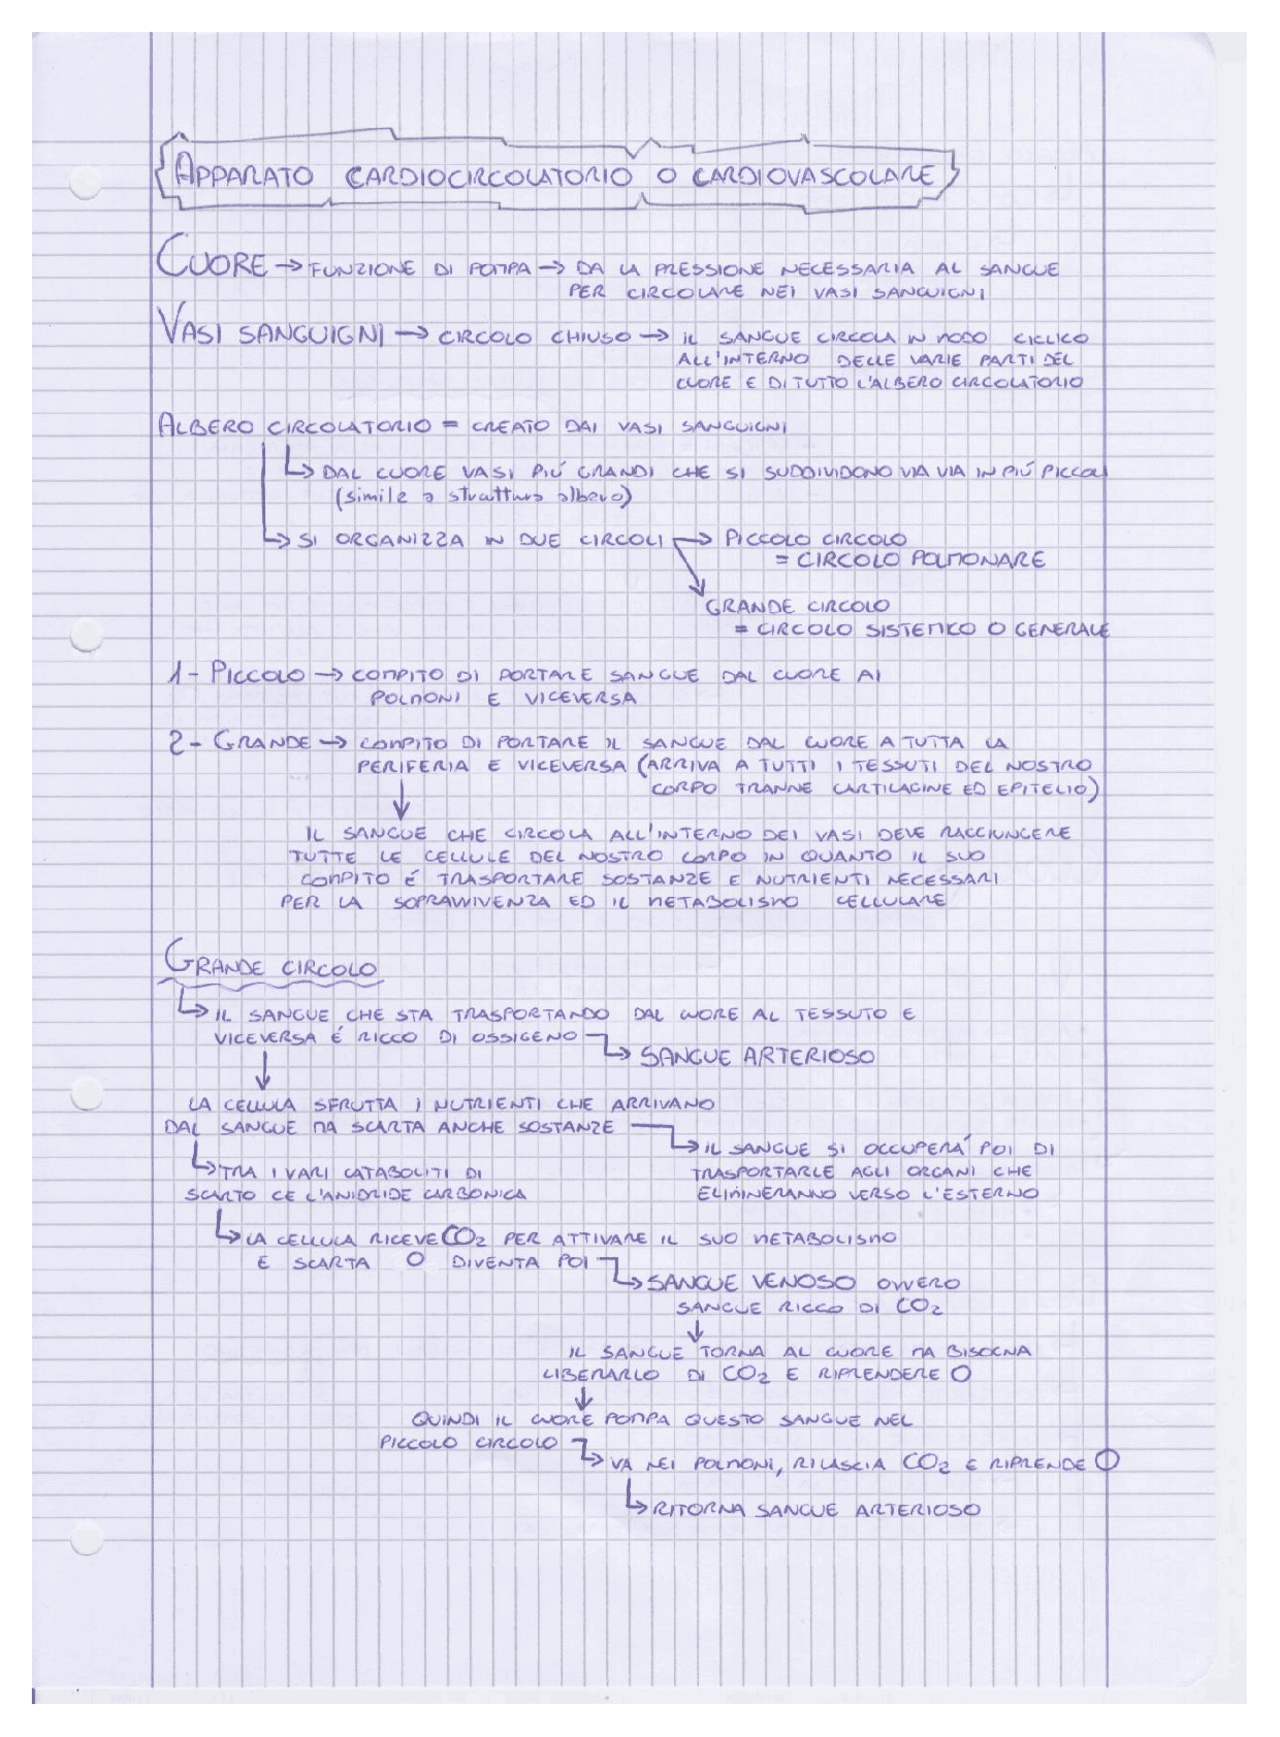 APPARATO CARDIOCIRCOLATORIO O CARDIOVASCOLARE
CUORE → FUNZIONE DI POMPA → DA LA PRESSIONE NECESSARIA AL SANGUE
PER CIRCOLARE NEI VASI SANGUIGNI
VASI SANGUIGNI → CIRCOLO CHIUSO → IL SANGUE CIRCOLA IN MODO CICLICO
ALL'INTERNO DELLE VARIE PARTI DEL
CUORE E DI TUTTO L'ALBERO CIRCOLATORIO
ALBERO CIRCOLATORIO = CREATO DAI VASI SANGUIGNI
↳ DAL CUORE VASI PIÚ GRANDI CHE SI SUDDIVIDONO VIA VIA IN PIÚ PICCOLI
(simile a struttura albero)
↳ SI ORGANIZZA IN DUE CIRCOLI → PICCOLO CIRCOLO
= CIRCOLO POLMONARE
GRANDE CIRCOLO
= CIRCOLO SISTEMICO O GENERALE
1- PICCOLO → COMPITO DI PORTARE SANGUE DAL CUORE AI
POLMONI E VICEVERSA
2- GRANDE → COMPITO DI PORTARE IL SANGUE DAL CUORE A TUTTA LA
PERIFERIA E VICEVERSA (ARRIVA A TUTTI I TESSUTI DEL NOSTRO
CORPO TRANNE CARTILAGINE ED EPITELIO)
↓
IL SANGUE CHE CIRCOLA ALL'INTERNO DEI VASI DEVE RAGGIUNGERE
TUTTE LE CELLULE DEL NOSTRO CORPO IN QUANTO IL SUO
COMPITO É TRASPORTARE SOSTANZE E NUTRIENTI NECESSARI
PER LA SOPRAVVIVENZA ED IL METABOLISMO CELLULARE
GRANDE CIRCOLO
↳ IL SANGUE CHE STA TRASPORTANDO DAL CUORE AL TESSUTO E
VICEVERSA É RICCO DI OSSIGENO
↳ SANGUE ARTERIOSO
↓
LA CELLULA SFRUTTA I NUTRIENTI CHE ARRIVANO
DAL SANGUE MA SCARTA ANCHE SOSTANZE
↳ IL SANGUE SI OCCUPERÁ POI DI
TRASPORTARLE AGLI ORGANI CHE
ELIMINERANNO VERSO L'ESTERNO
↳ TRA I VARI CATABOLITI DI
SCARTO CE L'ANIDRIDE CARBONICA
↳ LA CELLULA RICEVE CO2 PER ATTIVARE IL SUO METABOLISMO
E SCARTA O DIVENTA POI
↳ SANGUE VENOSO OVVERO
SANGUE RICCO DI CO2
↓
IL SANGUE TORNA AL CUORE MA BISOGNA
LIBERARLO DI CO2 E RIPRENDERE O
↓
QUINDI IL CUORE POMPA QUESTO SANGUE NEL
PICCOLO CIRCOLO
↳ VA NEI POLMONI, RILASCIA CO2 E RIPRENDE O
↳ RITORNA SANGUE ARTERIOSO